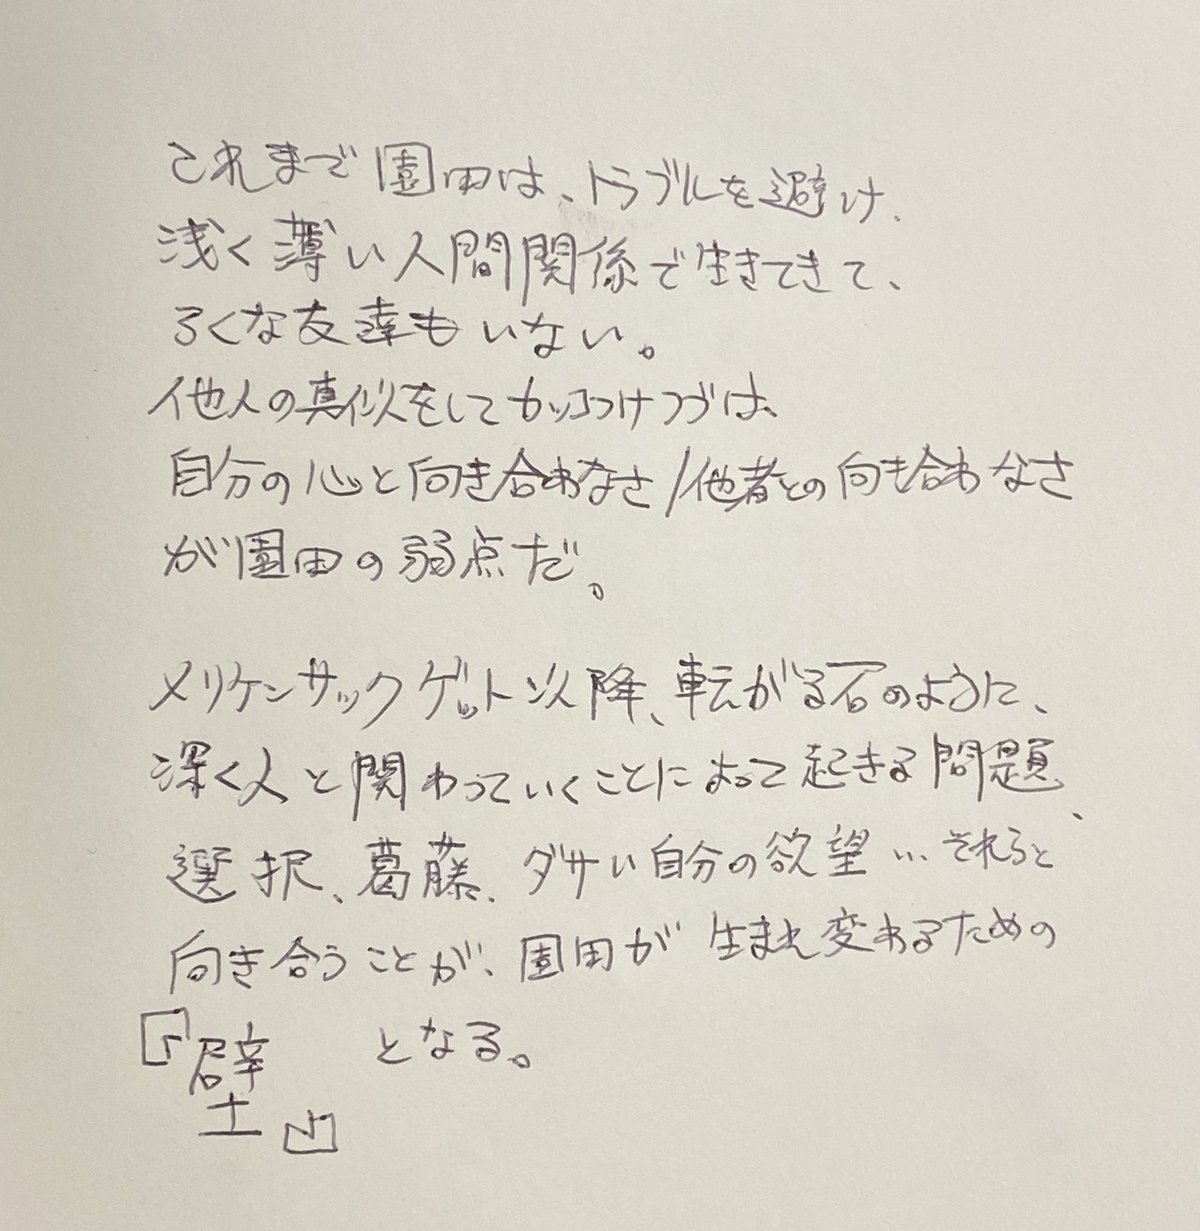 これまで園田は、トラブルを避け、
浅く薄い人間関係で生きてきて、
ろくな友達もいない。
他人の真似をしてカッコつけつづは、
自分の心と向き合わなさ/他者との向き合わなさ
が園田の弱点だ。
メリケンサックゲット以降、転がる石のように、
深く人と関わっていくことによって起きる問題、
選択、葛藤、ダサい自分の欲望…それらと
向き合うことが、園田が生まれ変わるための
『壁』となる。